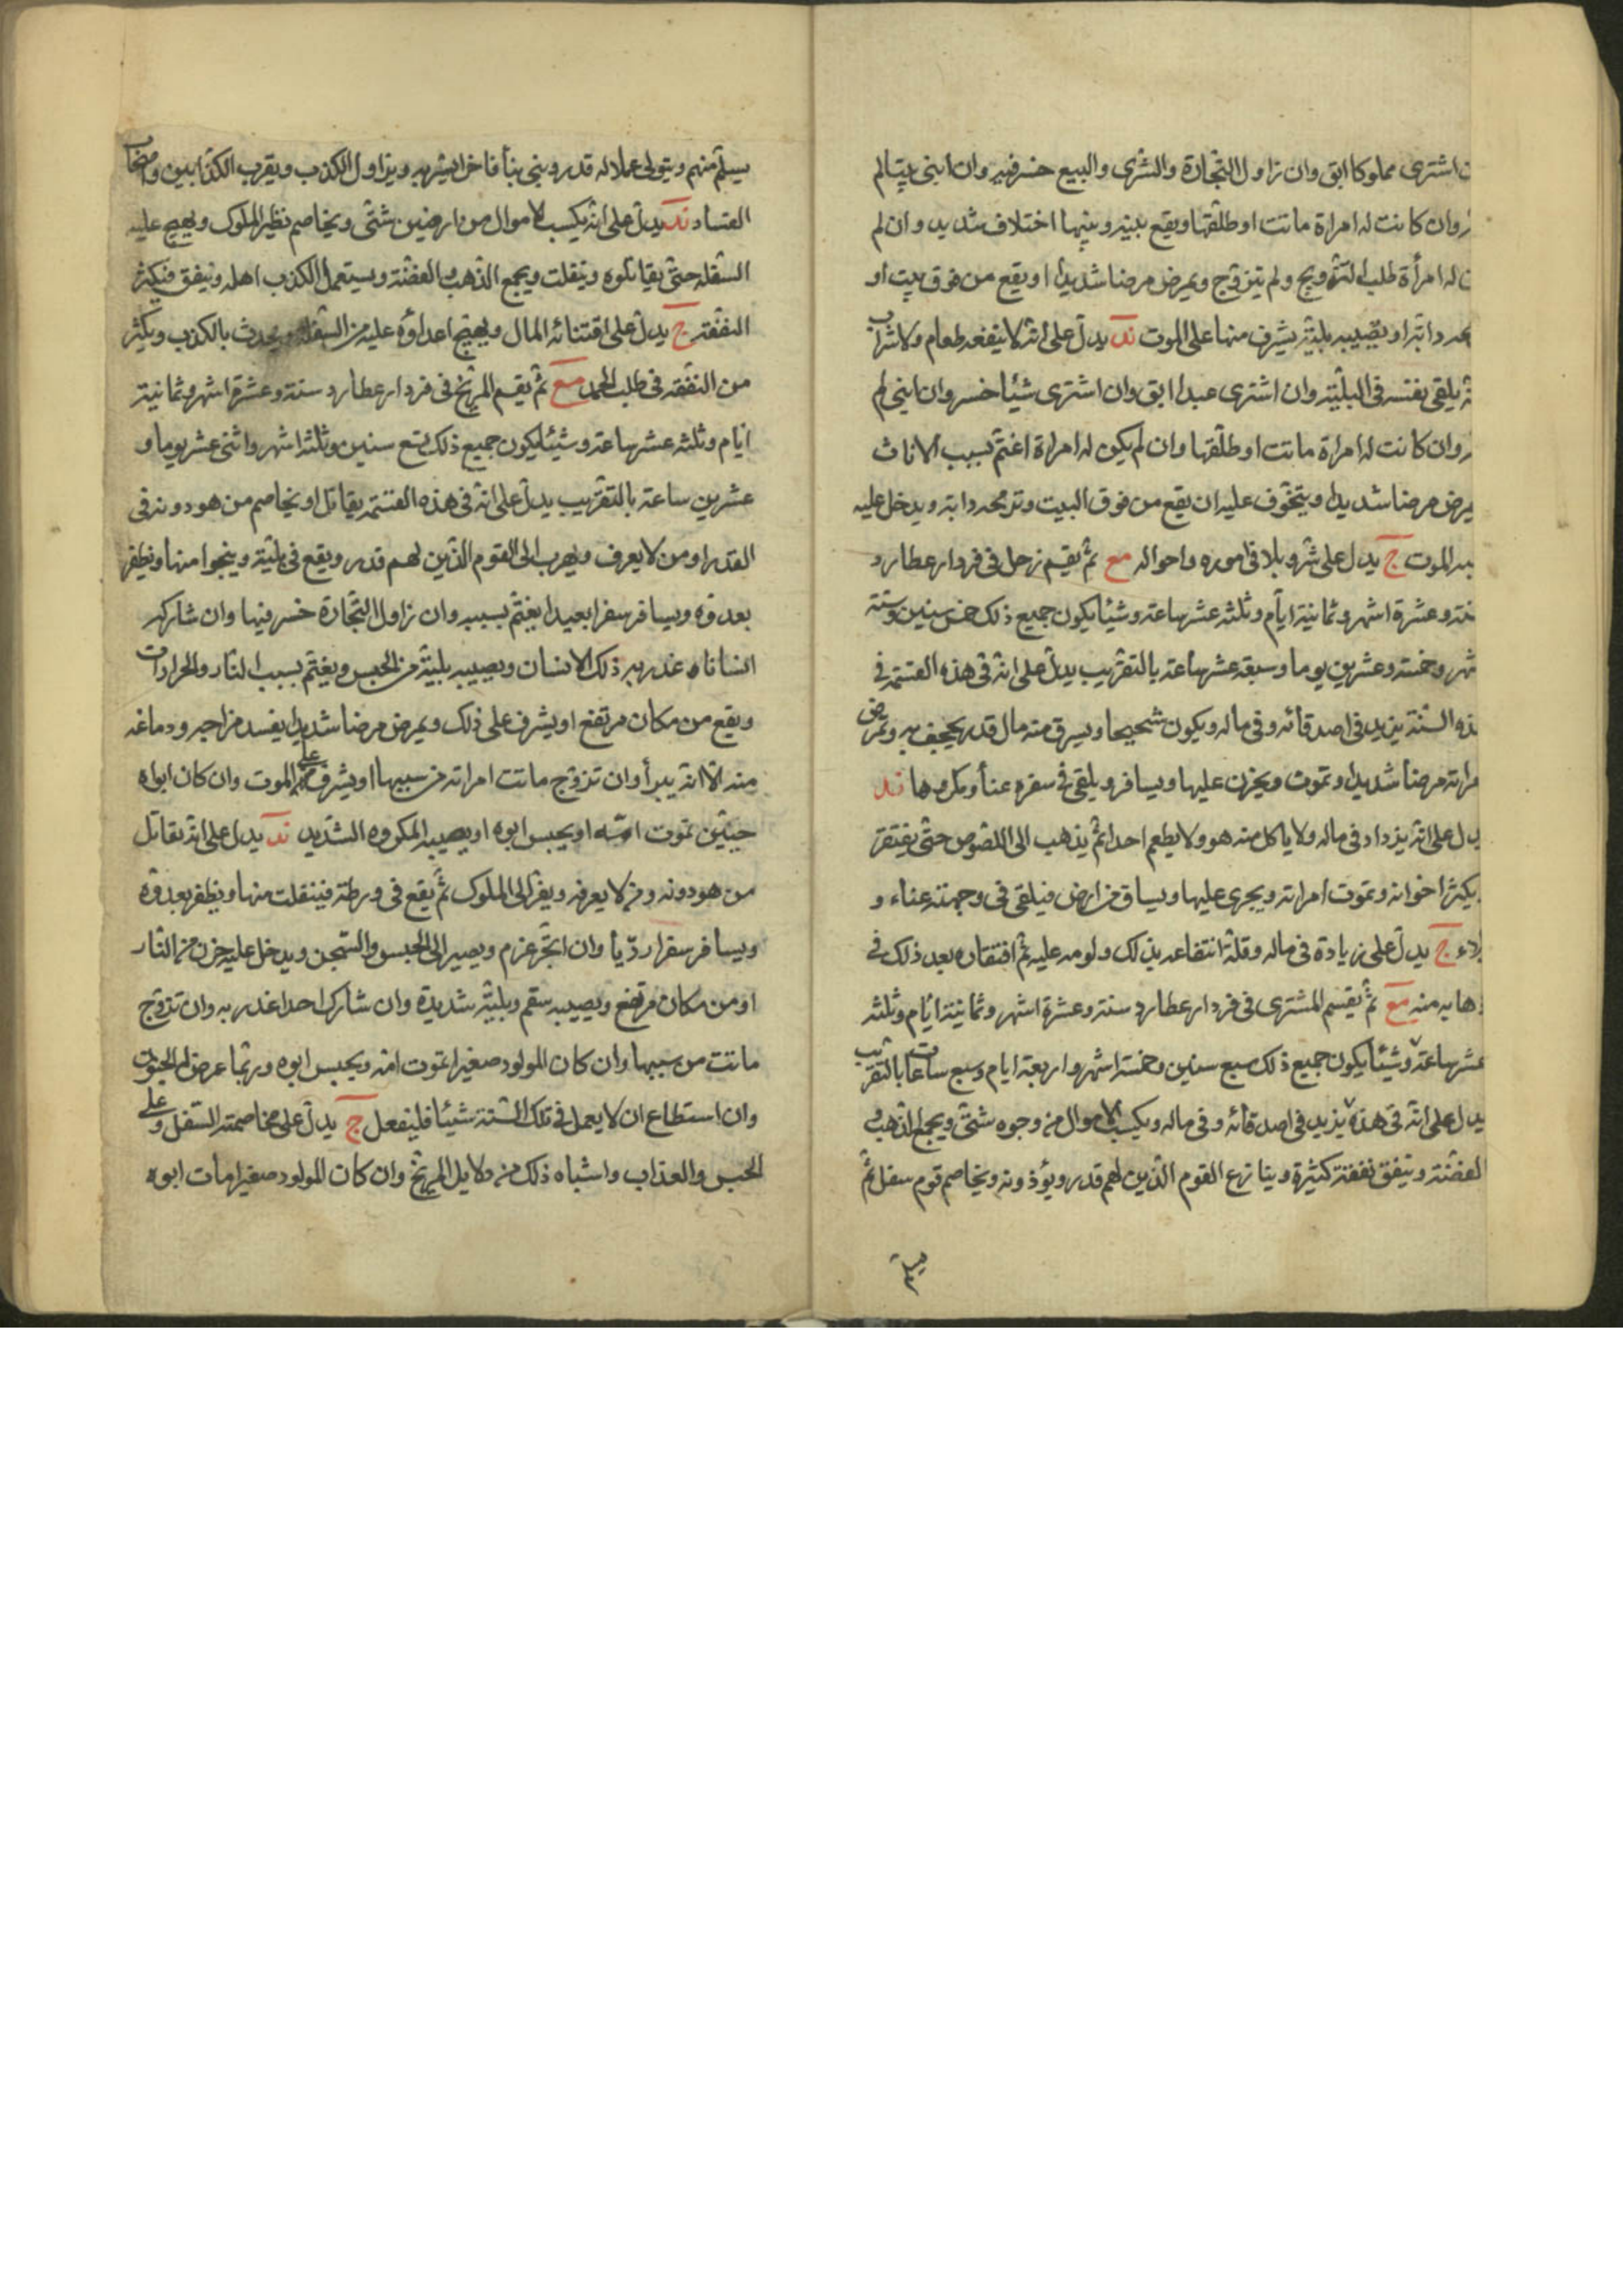 اشترى مملوكا ابق وان زاول التجارة والشرى والبيع خسر فيه وان ابنى بيتا لم
وان كانت له امراة ماتت او طلقها ويقع بينه وبينها اختلاف شديد وان لم
له امرأة طلب التزويج ولم يتزوج ويمرض مرضا شديدا او يقع من فوق بيت او
دابة او يصيبه بلية يشرف منها على الموت ند يدل على انه لا ينفعه طعام ولا شراب
يلقى بنفسه فى البلية وان اشترى عبدا ابق وان اشترى شيئا خسر وان ابنى لم
وان كانت له امراة ماتت او طلقها وان لم يكن له امراة اغتم بسبب الاناث
يمرض مرضا شديدا ويتخوف عليه ان يقع من فوق البيت دابته ويدخل عليه
الموت ج يدل على شر وبلا فى اموره واحواله مع ثم يقسم زحل فى فردار عطارد
سنة وعشرة اشهر وثمانية ايام وثلثه عشر ساعة وشيئا يكون جميع ذلك خمس سنين وستة
شهر وخمسة وعشرين يوما وسبعة عشر ساعة بالتقريب يدل على انه فى هذه القسمة فى
هذه السنة يزيد فى اصدقائه وفى ماله ويكون شحيحا ويسرق منه مال قدر يجحف به وتمرض
مراته مرضا شديدا وتموت ويحزن عليها ويسافر ويلقى فى سفره عنأ ومكروها ند
يدل على انه يزداد فى ماله ولا ياكل منه هو ولا يطعم احدا ثم يذهب الى اللصوص حتى يفتقر
يكثر اخوانه وتموت امراته ويجرى عليها ويساق من ارض فيلقى فى وجهته عناء و
بلاء ج يدل على زيادة فى ماله وقلة انتفاعه بذلك ولومه عليه ثم افتقاره بعد ذلك فى
ذهابه منه مع ثم يقسم المشترى فى فردار عطارد سنة وعشرة اشهر وثمانية ايام وثلثه
عشر ساعة وشيئا يكون جميع ذلك سبع سنين وخمسة اشهر واربعة ايام وسبع ساعات بالتقريب
يدل على انه فى هذه يزيد فى اصدقائه وفى ماله ويكسب الاموال من وجوه شتى ويجمع الذهب و
الفضة وينفق نفقة كثيرة وينازع القوم الذين لهم قدر ويؤذونه ويخاصم قوم سفل ثم
يسلم
يسلم منهم ويتولى عملا له قدر ويبنى بنأ فاخرا يشهر به ويزاول الكذب ويقرب الكذابين واصحاب
الفساد ند يدل على انه يكسب الاموال من ارضين شتى ويخاصم نظير الملوك ويهيج عليه
السفله حتى يقاتلوه وينفلت ويجمع الذهب والفضة ويستعمل الكذب اهله وينفق فيكثر
النفقة ج يدل على اقتنائه المال ويهيج اعداؤه عليه من السفله ويحدث بالكذب ويكثر
من النفقة فى طلب الحمد مع ثم يقسم المريخ فى فردار عطارد سنة وعشرة اشهر وثمانية
ايام وثلثه عشر ساعة وشيئا يكون جميع ذلك تسع سنين وثلثة اشهر واثنى عشر يوما و
عشرين ساعة بالتقريب يدل على انه فى هذه القسمة يقاتل او يخاصم من هو دونه فى
القدر او من لا يعرف ويهرب الى القوم الذين لهم قدر ويقع فى بلية وينجوا منها ويظفر
بعدوه ويسافر سفرا بعيدا يغتم بسببه وان زاول التجارة خسر فيها وان شاركه
انسانا غدر به ذلك الانسان ويصيبه بلية من الحبس ويغتم بسبب النار والحرارات
ويقع من مكان مرتفع او يشرف على ذلك ويمرض مرضا شديدا يفسد مزاجه ودماغه
منه الا انه يبرأ وان تزوج ماتت امراته من سببها او يشرف على الموت وان كان ابواه
حيين تموت امه او يحبس ابوه او يصيبه المكروه الشديد ند يدل على انه يقاتل
من هو دونه ومن لا يعرفه ويفر الى الملوك ثم يقع فى ورطة فينفلت منها ويظفر بعدوه
ويسافر سفرا رديأ وان اتجر غرم ويصير الى الحبس والسجن ويدخل عليه حزن من النار
او من مكان مرتفع ويصيبه سقم وبلية شديدة وان شارك احدا غدر به وان تزوج
ماتت من سببها وان كان المولود صغيرا تموت امه ويحبس ابوه وربما عرض له
وان استطاع ان لا يعمل فى تلك السنة شيئا فليفعل ج يدل على مخاصمته السفل وعلى
الحبس والعذاب واشباه ذلك من دلايل المريخ وان كان المولود صغيرا مات ابوه